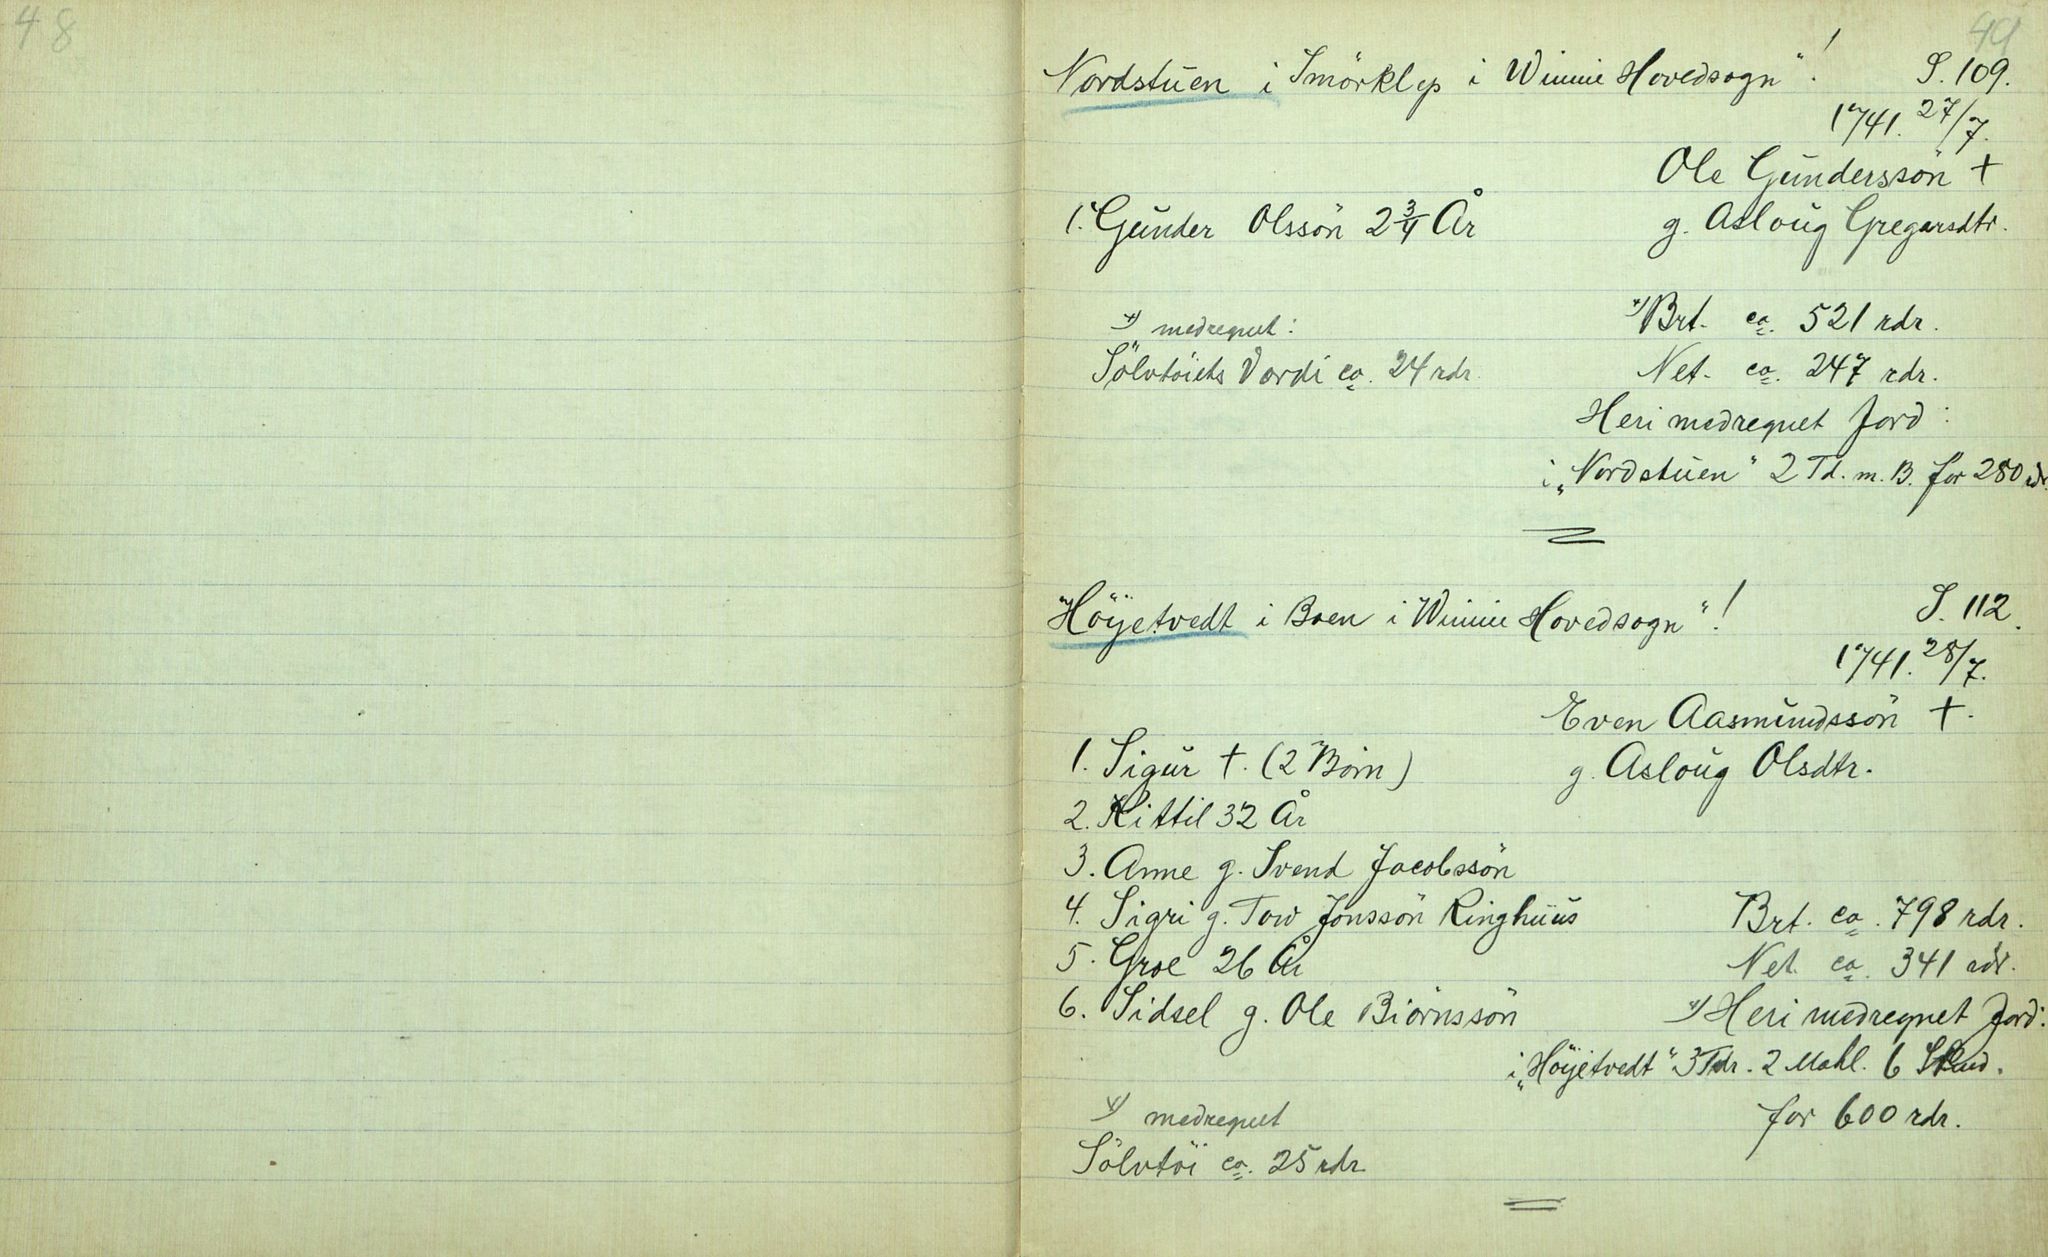 48
49
Nordstuen i Smörklep i Winnie Hovedsogn"! S. 109.
1741. 27/7.
Ole Gunderssön †
1. Gunder Olssön 2 3/4 År g. Asloug Gregarsdtr.
x) Brt. ca. 521 rdr.
x) medregnet:
Sölvtöiets Værdi ca. 24 rdr. Net. ca. 247 rdr.
Heri medregnet Jord:
i „Nordstuen" 2 Td. m. B. for 280 rdr.
"Höÿetvedt i Boen i Winnie Hovedsogn"! S. 112.
1741. 28/7.
Even Aasmundssön †.
1. Sigur †. (2 Börn) g. Asloug Olsdtr.
2. Kittil 32 År
3. Anne g. Svend Jacobssön
4. Sigri g. Tov Jonssön Ringhuus Brt. ca. 798 rdr.
5. Groe 26 År Net. ca. 341 rdr.
6. Sidsel g. Ole Biörnssön x) Heri medregnet Jord:
i „Höÿetvedt" 3 Tdr. 2 Mæhl. 6 Skind.
x) medregnet for 600 rdr.
Sölvtöi ca. 25 rdr.